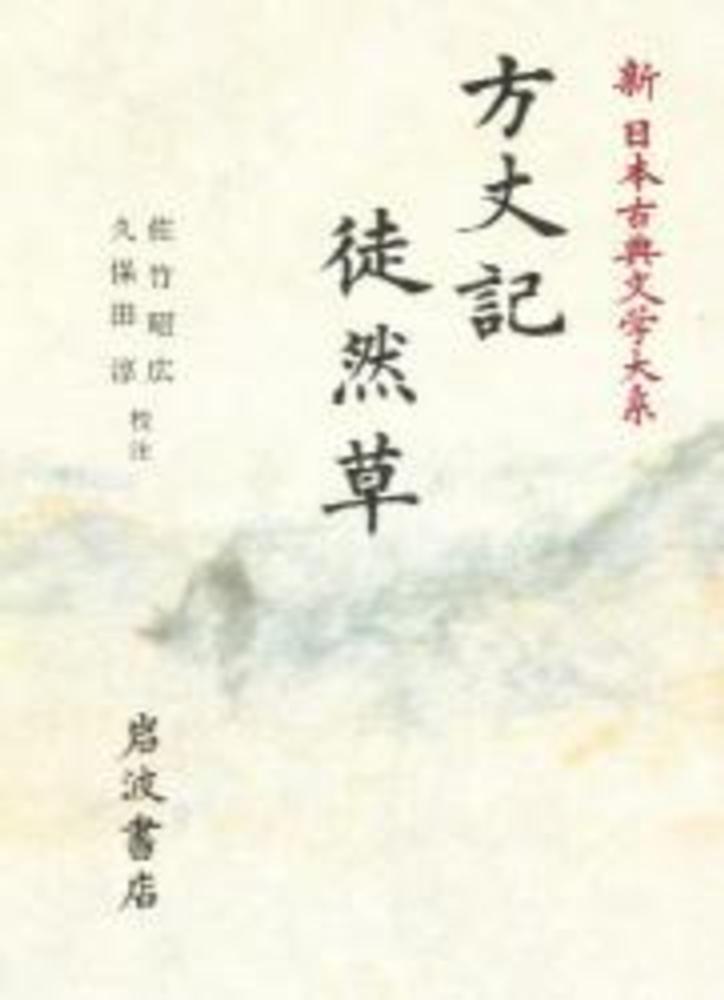 新 日本古典文学大系
方丈記
徒然草
佐竹昭広
久保田淳
校注
岩波書店